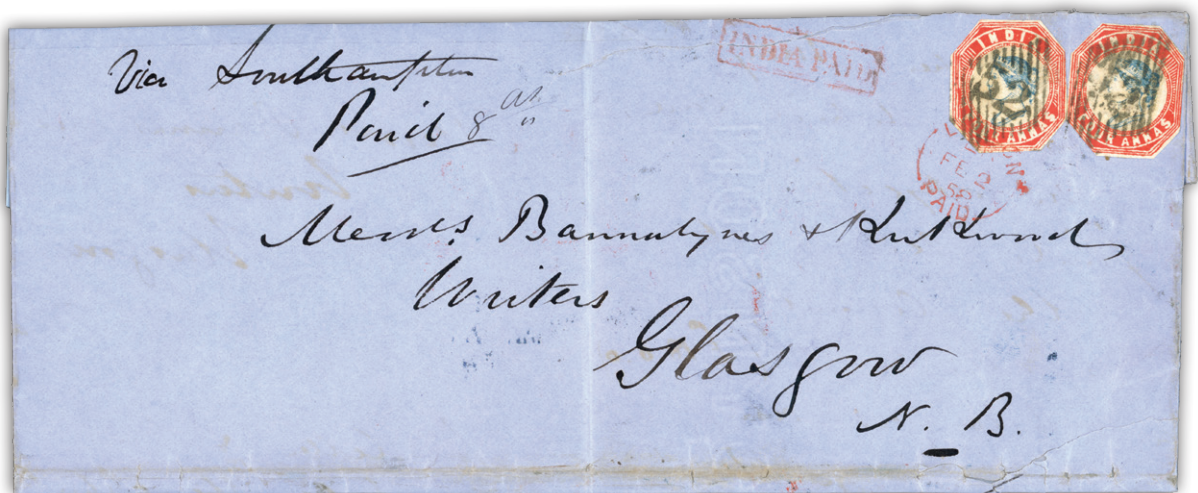 Via Southampton
Paid 8 as
INDIA PAID
INDIA
FOUR ANNAS
52
INDIA
FOUR ANNAS
LONDON
FE 2
58
PAID
Messrs. Bannatynes & Kirkwood
Writers
Glasgow
N. B.